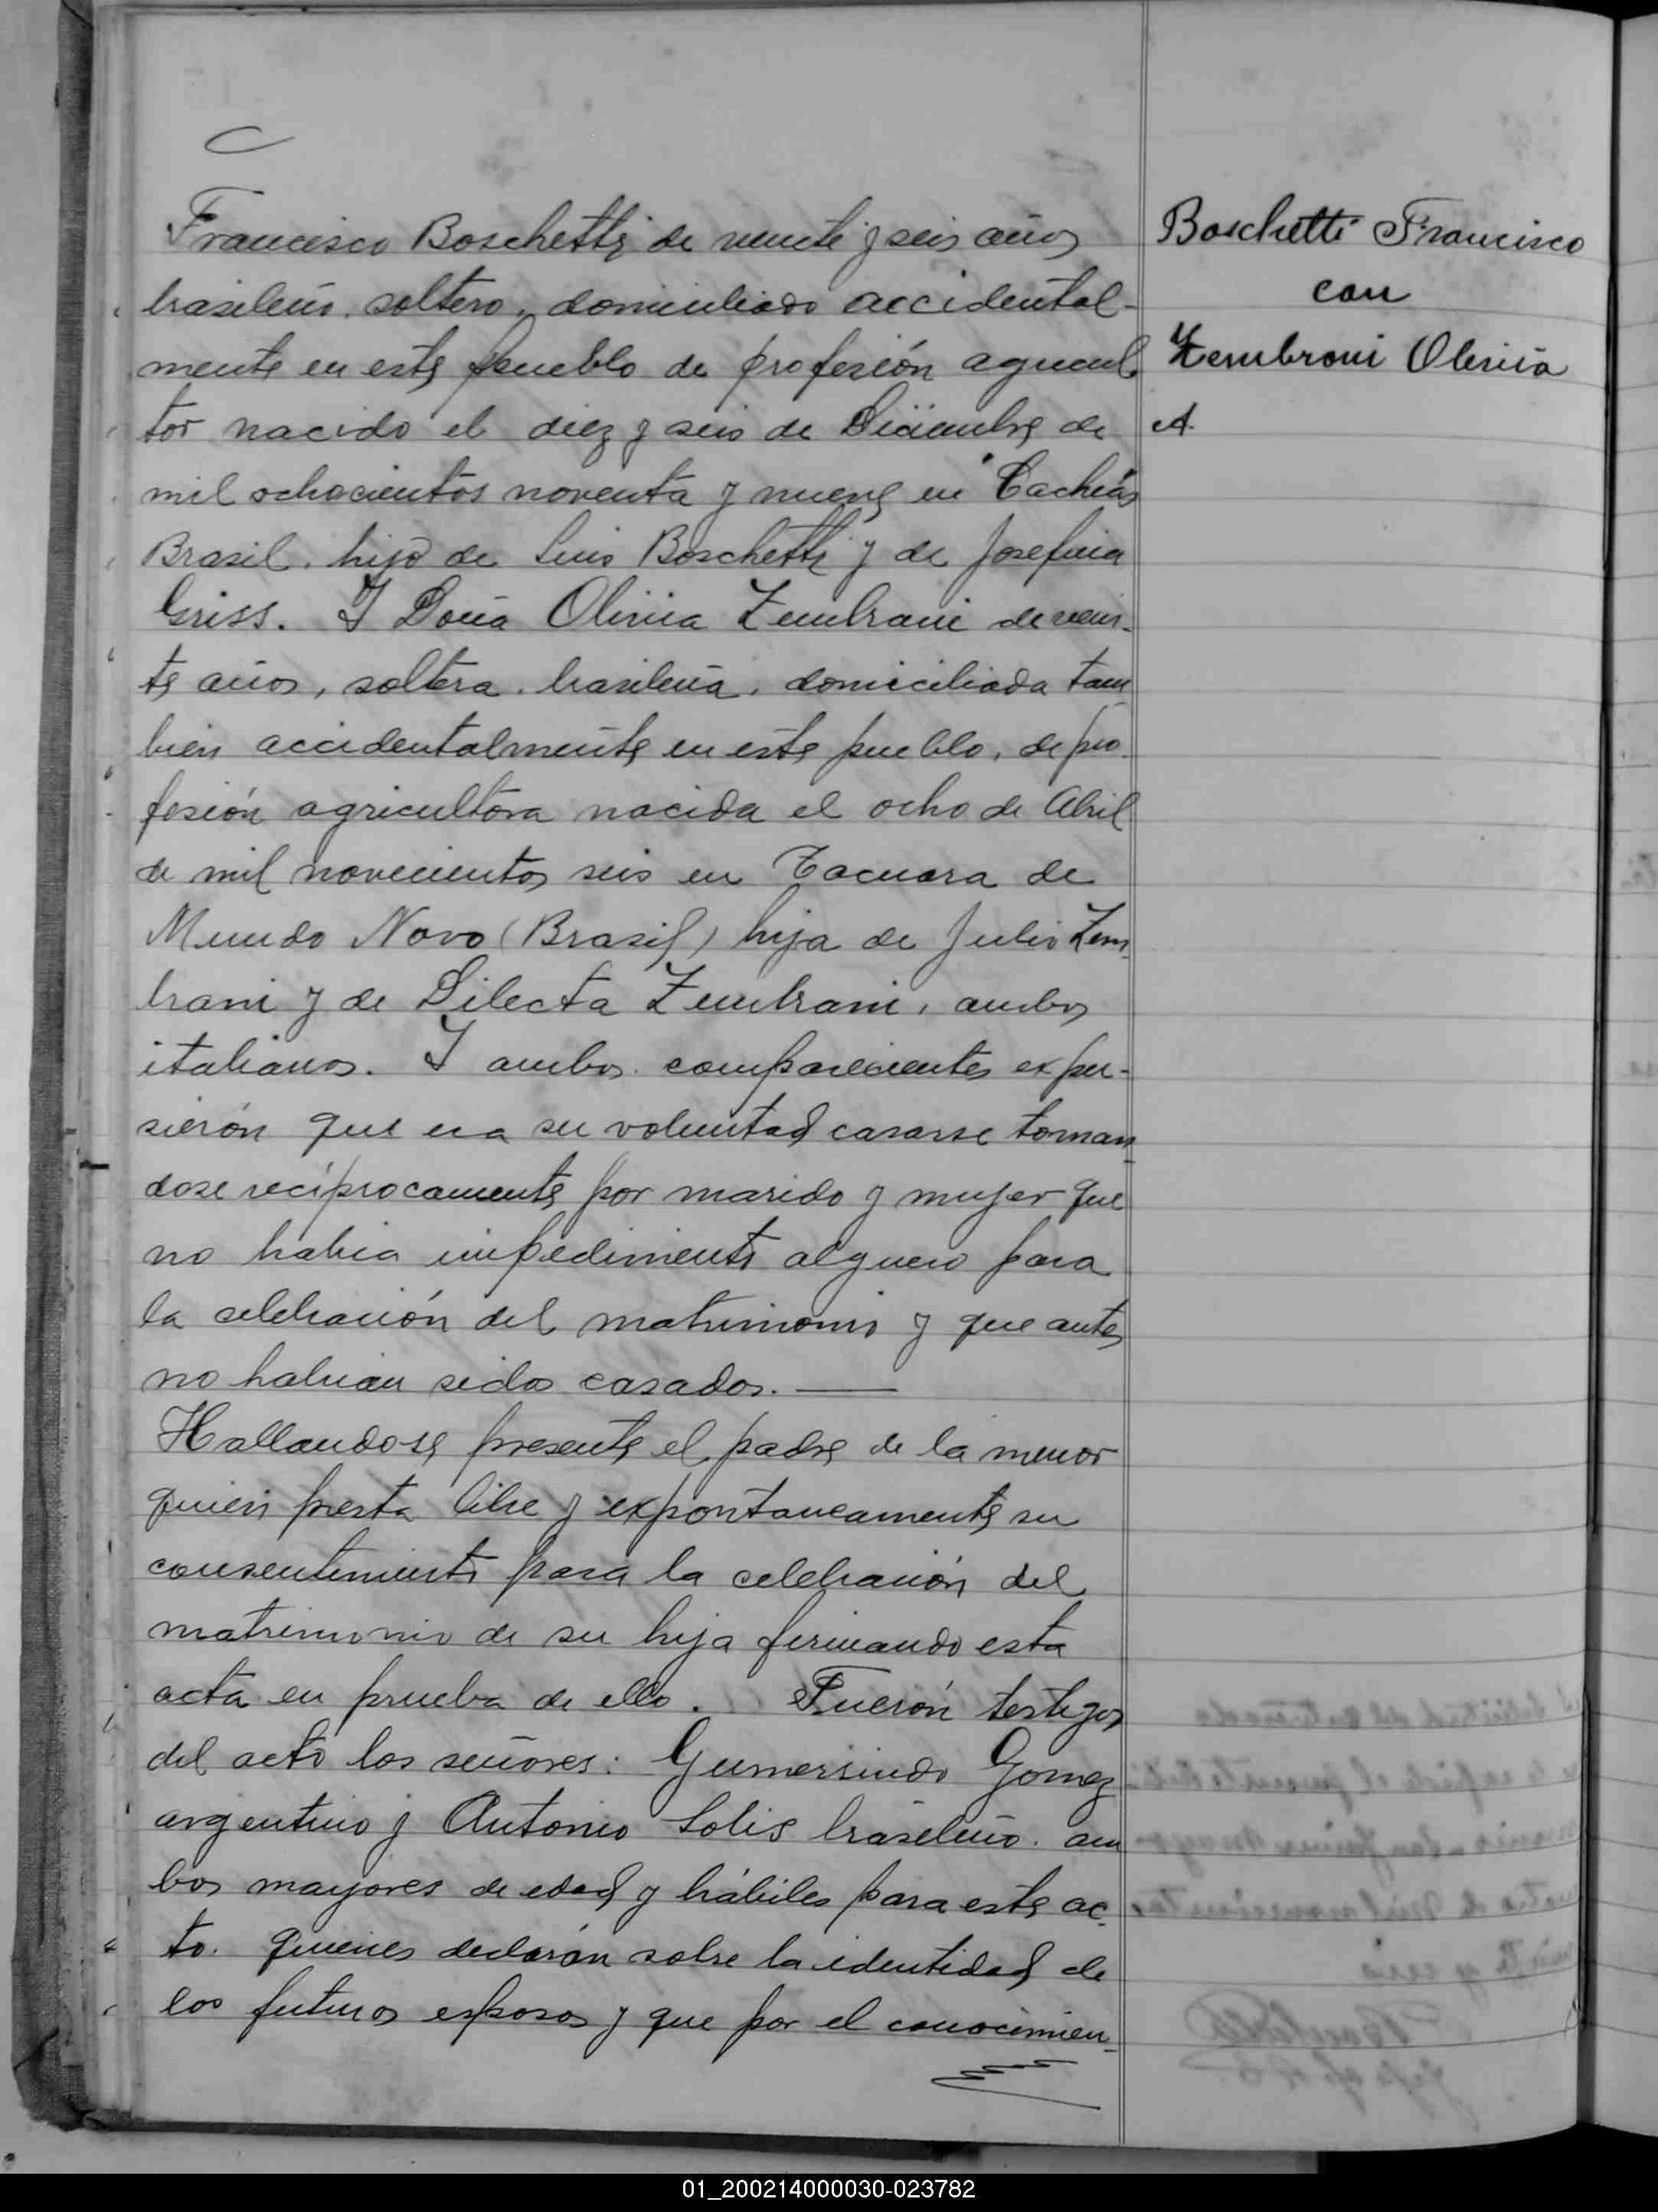 Francisco Boschetti de veinte y seis años
brasileño, soltero, domiciliado accidental-
mente en este pueblo de profesión agricul
tor nacido el diez y seis de Diciembre de
mil ochocientos noventa y nueve en Cachias
Brasil, hijo de Luis Boschetti y de Josefina
Griss. Y Doña Olivia Zembrani de vein-
te años, soltera, brasileña, domiciliada tam
bien accidentalmente en este pueblo, de pro
fesión agricultora nacida el ocho de Abril
de mil novecientos seis en Tacuara de
Mundo Novo (Brasil) hija de Julio Zem
brani y de Dilecta Zembrani, ambos
italianos. Y ambos comparecientes expu-
sierón que era su voluntad casarse toman
dose recíprocamente por marido y mujer que
no habia impedimento alguno para
la celebración del matrimonio y que antes
no habian sidos casados.
Hallandose presente el padre de la menor
quien presta libre y expontaneamente su
consentimiento para la celebración del
matrimonio de su hija firmando esta
acta en prueba de ello. Fuerón testigos
del acto los señores: Gumersindo Gomez
argentino y Antonio Solis brasileño. am
bos mayores de edad y hábiles para este ac
to. quienes declarán sobre la identidad de
los futuros esposos y que por el conocimien
Boschetti Francisco
con
Zembroni Olivia
A.
01_200214000030-023782